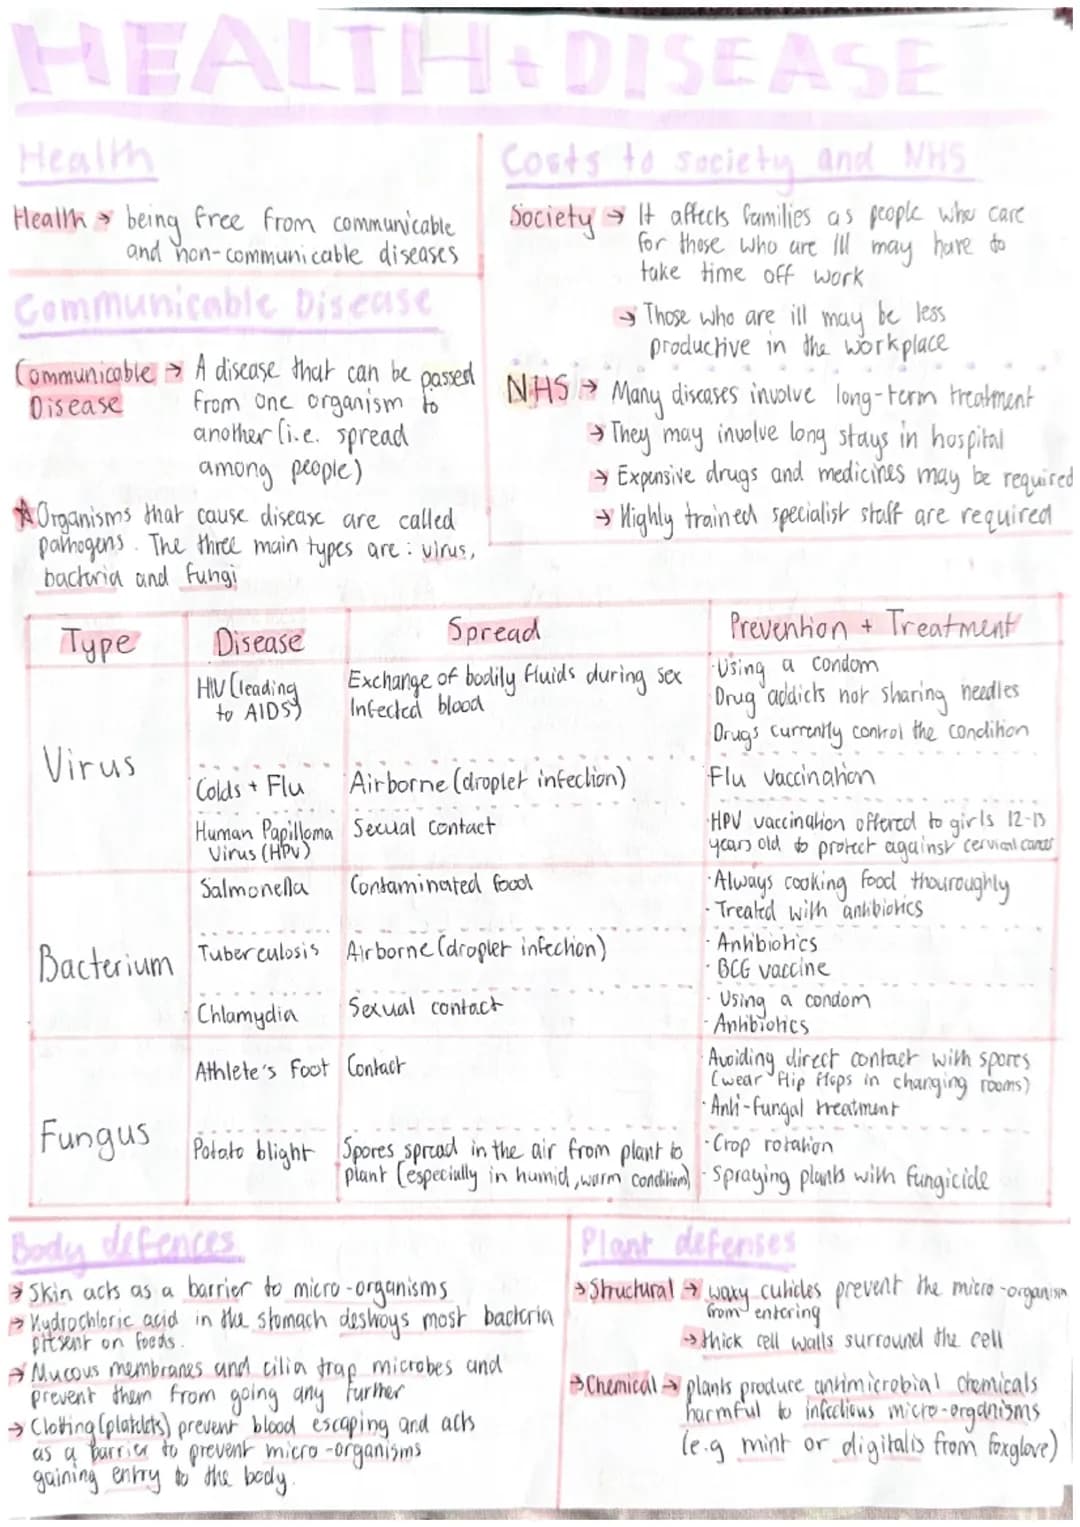 HEALTH + DISEASE
Health
Health → being free from communicable
and non-communicable diseases
Communicable Disease
Communicable Disease → A disease that can be passed
from one organism to
another (i.e. spread
among people)
☆ Organisms that cause disease are called
pathogens. The three main types are: virus,
bacteria and fungi
Costs to society and NHS
Society → It affects families as people who care
for those who are ill may have to
take time off work
→ Those who are ill may be less
productive in the workplace
NHS → Many diseases involve long-term treatment
→ They may involve long stays in hospital
→ Expensive drugs and medicines may be required
→ Highly trained specialist staff are required
Type Disease Spread Prevention + Treatment
Virus
HIV (leading
to AIDS)
Exchange of bodily fluids during sex
Infected blood
· Using a condom
Drug addicts not sharing needles
Drugs currently control the condition
Colds + Flu Airborne (droplet infection) Flu vaccination
Human Papilloma
Virus (HPV)
Sexual contact
· HPV vaccination offered to girls 12-13
years old to protect against cervical cancer
Bacterium
Salmonella Contaminated food
· Always cooking food thouroughly
· Treated with antibiotics
Tuberculosis Airborne (droplet infection)
· Antibiotics
· BCG vaccine
Chlamydia Sexual contact
· Using a condom
· Antibiotics
Fungus
Athlete's Foot Contact
· Avoiding direct contact with spores
(wear flip flops in changing rooms)
· Anti-fungal treatment
Potato blight
Spores spread in the air from plant to
plant (especially in humid, warm condition)
· Crop rotation
· Spraying plants with fungicide
Body defences
→ Skin acts as a barrier to micro-organisms
→ Hydrochloric acid in the stomach destroys most bacteria
present on foods.
→ Mucous membranes and cilia trap microbes and
prevent them from going any further
→ Clotting (platelets) prevent blood escaping and acts
as a barrier to prevent micro-organisms
gaining entry to the body.
Plant defenses
→ Structural → waxy cuticles prevent the micro-organism
from entering
→ thick cell walls surround the cell
→ Chemical → plants produce antimicrobial chemicals
harmful to infectious micro-organisms
(e.g mint or digitalis from foxglove)